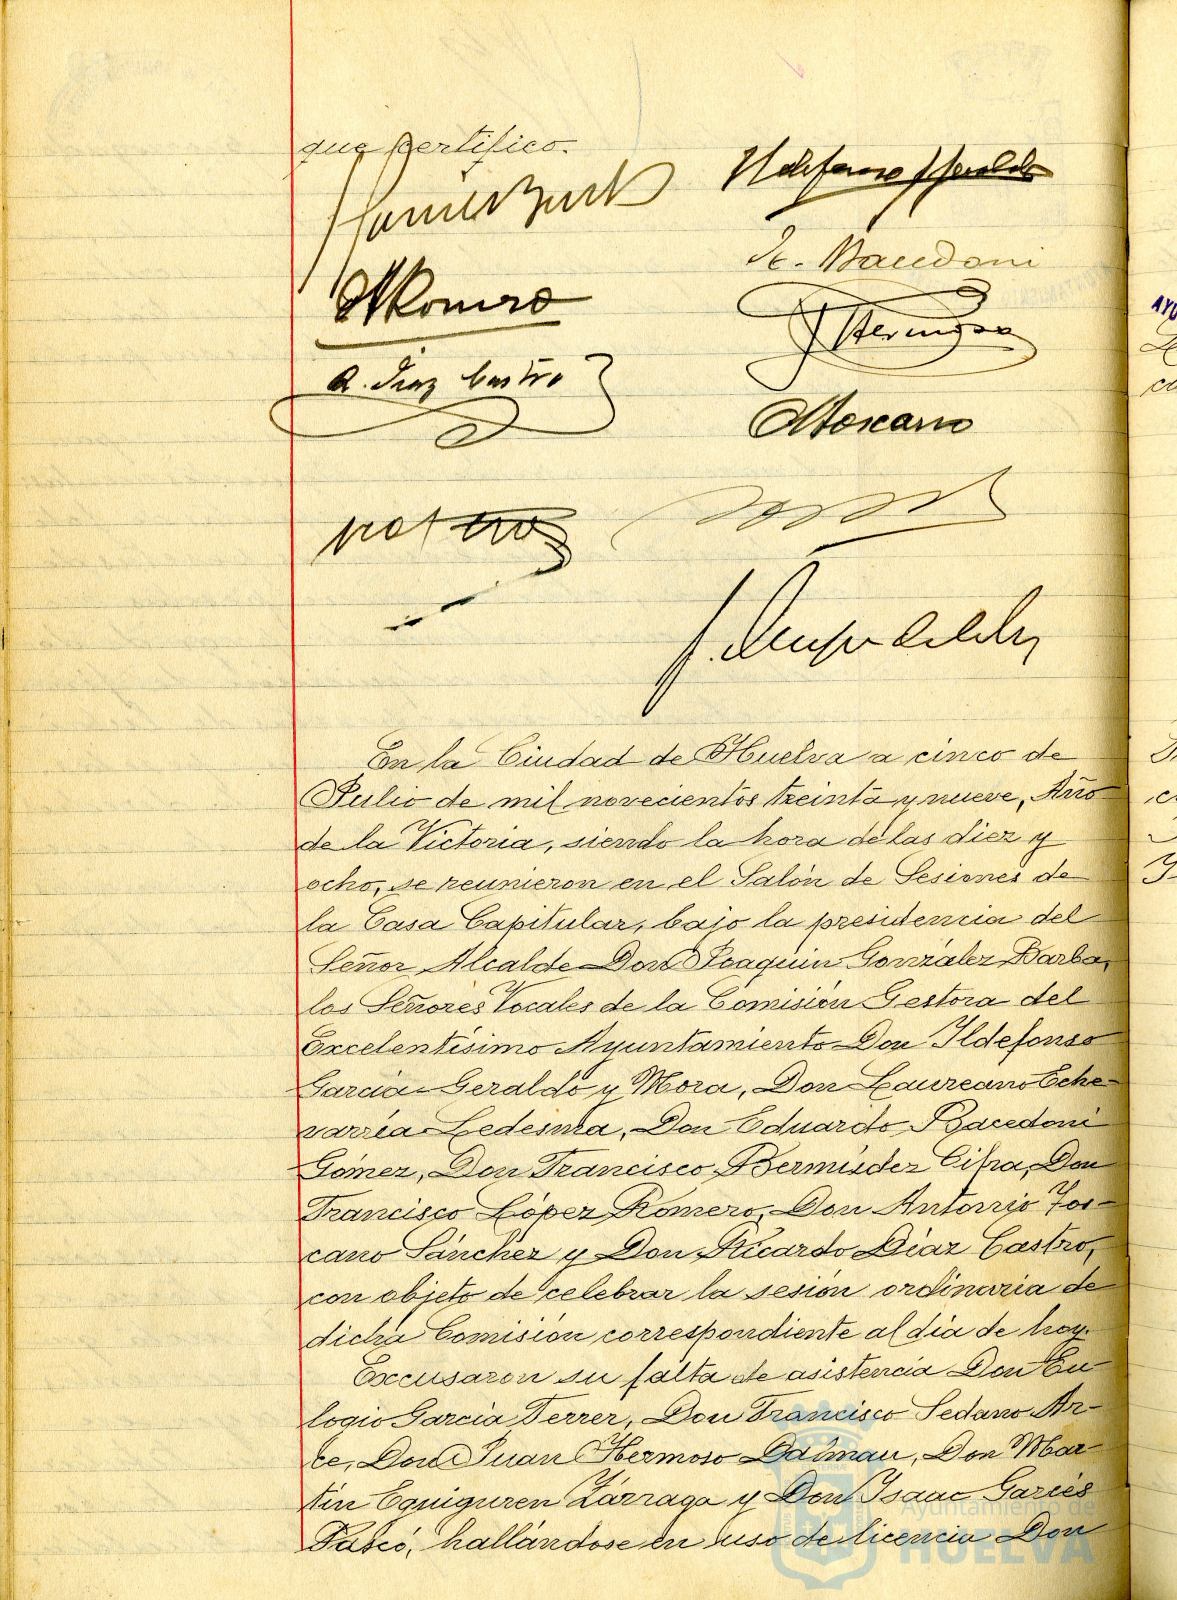 que certifico.
Ildefonso G Geraldo
E. Bacedoni
F Romero
J Hermoso
R. Diaz Castro
A Toscano
En la Ciudad de Huelva a cinco de
Julio de mil novecientos treinta y nueve, Año
de la Victoria, siendo la hora de las diez y
ocho, se reunieron en el Salón de Sesiones de
la Casa Capitular, bajo la presidencia del
Señor Alcalde Don Joaquin González Barba,
los Señores Vocales de la Comisión Gestora del
Excelentísimo Ayuntamiento Don Ildefonso
Garcia-Geraldo y Mora, Don Laureano Eche-
varría Ledesma, Don Eduardo Bacedoni
Gómez, Don Francisco Bermúdez Cifra, Don
Francisco López Romero, Don Antonio Tos-
cano Sánchez y Don Ricardo Díaz Castro,
con objeto de celebrar la sesión ordinaria de
dicha Comisión correspondiente al día de hoy.
Excusaron su falta de asistencia Don Eu-
logio García Ferrer, Don Francisco Sedano Ar-
ce, Don Juan Hermoso Dalmau, Don Mar-
tín Eguiguren Zárraga y Don Isaac Garcés
Pascó, hallándose en uso de licencia Don
Ayuntamiento de
HUELVA